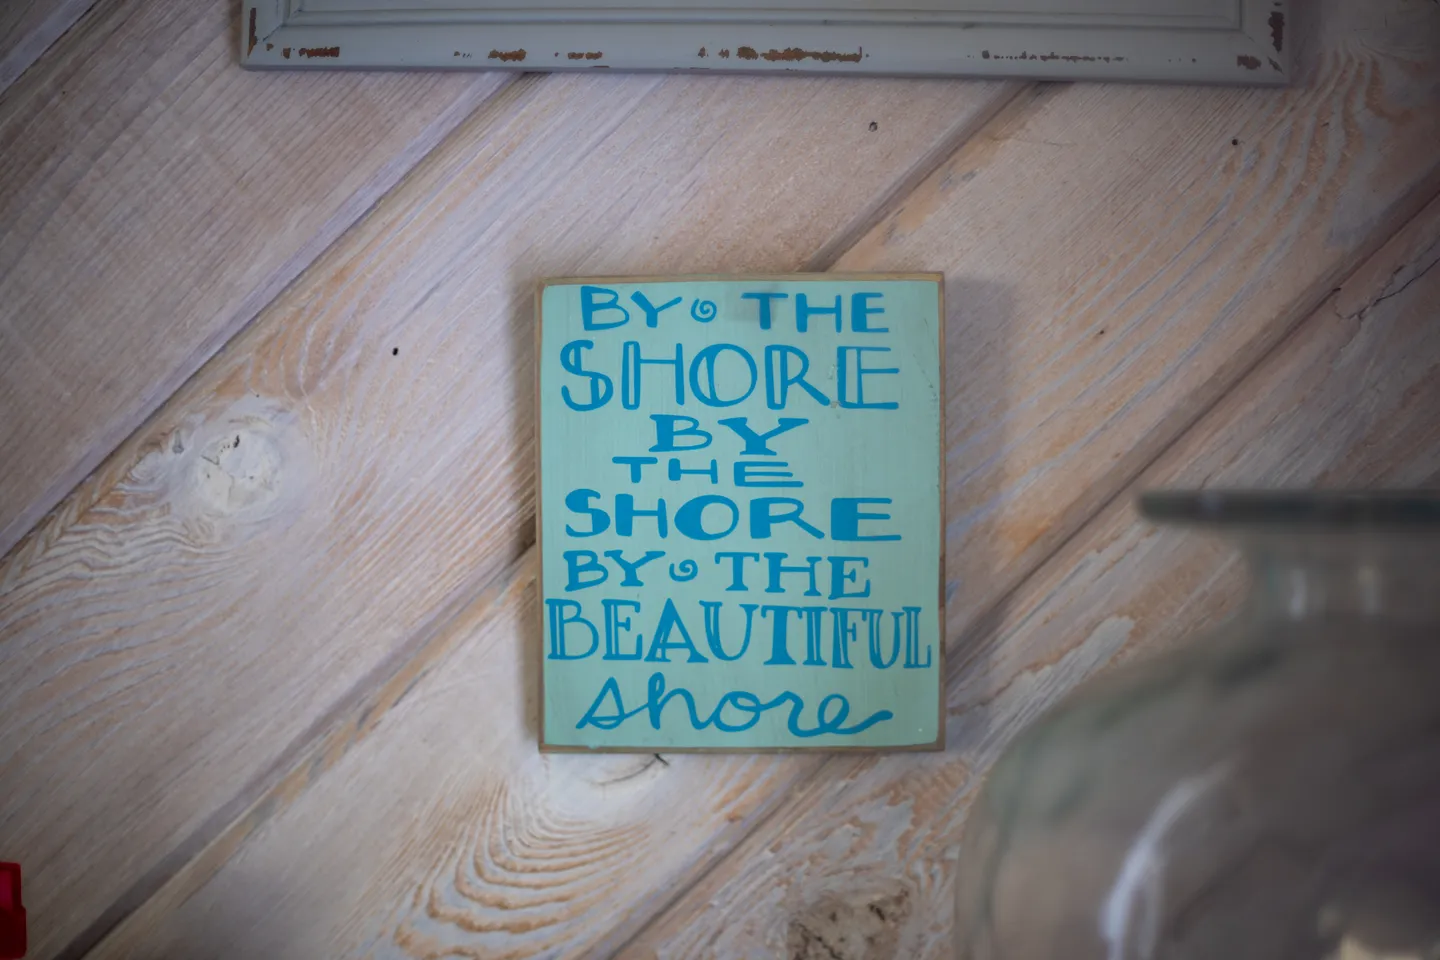 BY THE
SHORE
BY
THE
SHORE
BY THE
BEAUTIFUL
shore